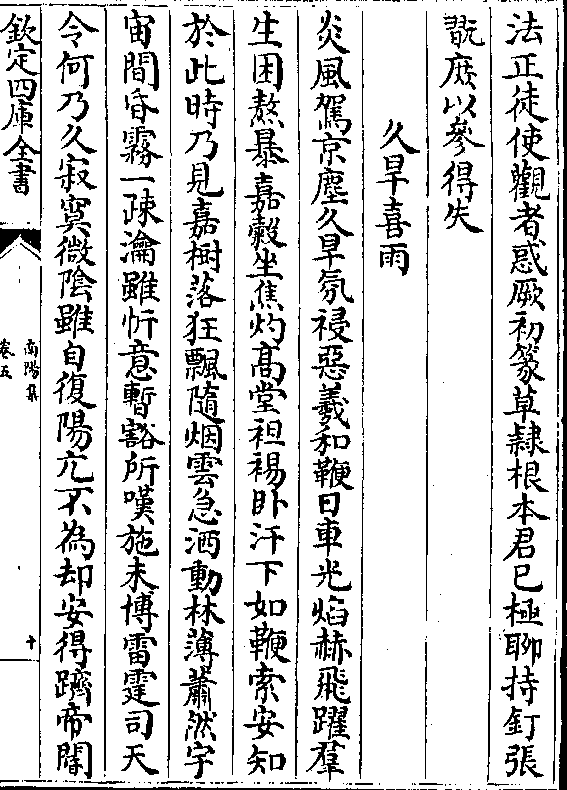 法正徒使觀者惑厥初篆草隸根本君已極聊持釘張
翫庶以參得失
久旱喜雨
炎風駕京塵久旱氛祲惡羲和鞭日車光焰赫飛躍羣
生困熬暴嘉穀坐焦灼高堂袒裼卧汗下如鞭索安知
於此時乃見嘉樹落狂飄隨烟雲急洒動林薄蕭然宇
宙間昏霧一疎瀹雖忻意暫豁所嘆施未博雷霆司天
令何乃久寂寞微陰雖自復陽亢不為却安得躋帝閽
欽定四庫全書
南陽集
卷五
十